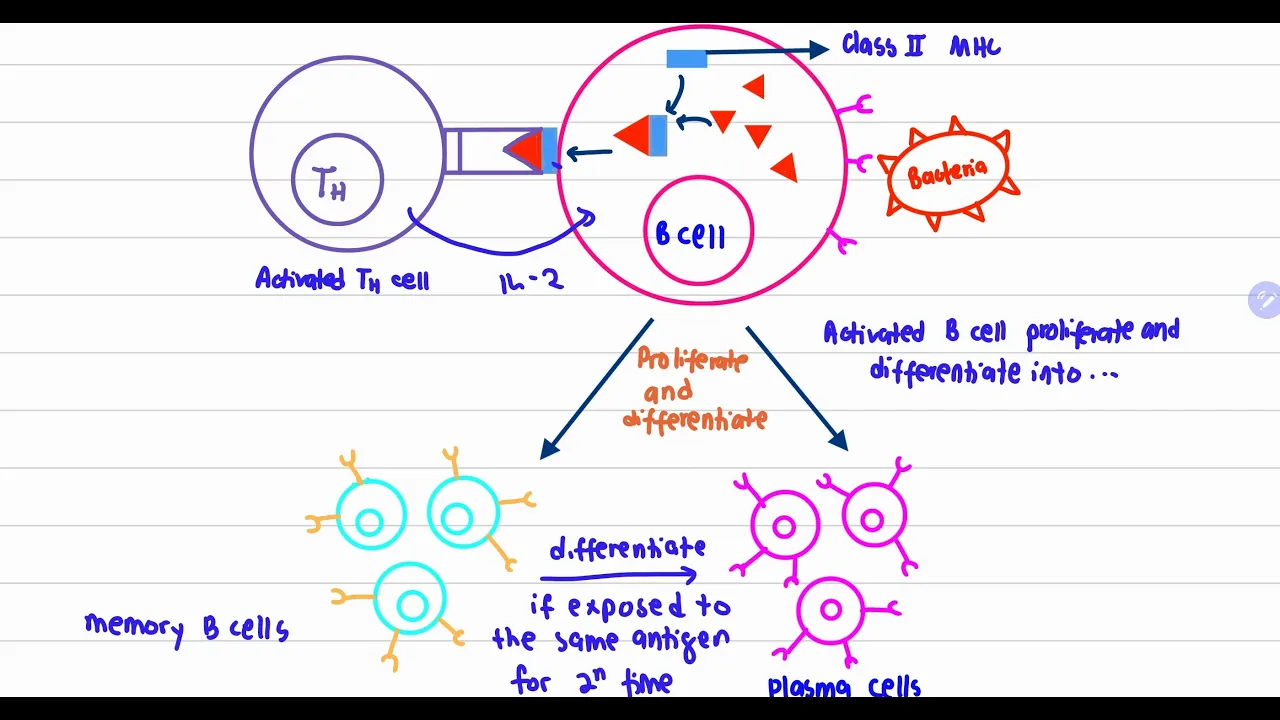 Class II MHC
TH
Bacteria
B cell
Activated TH cell
IL-2
Activated B cell proliferate and
differentiate into...
Proliferate
and
differentiate
differentiate
if exposed to
the same antigen
for 2n time
memory B cells
plasma cells